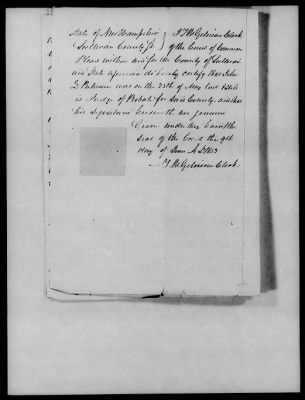 State of New Hampshire } I
Sullivan County Ss } Clerk
of the Court of Common
Pleas within and for the County of Sullivan
and State aforesaid do hereby certify that John
L Putnam was on the 28th of May last & still
is Judge of Probate for said County and that
his signatures herewith are genuine
Given under my hand & the
seal of the Court the 9th
day of June A D 1853
Clerk